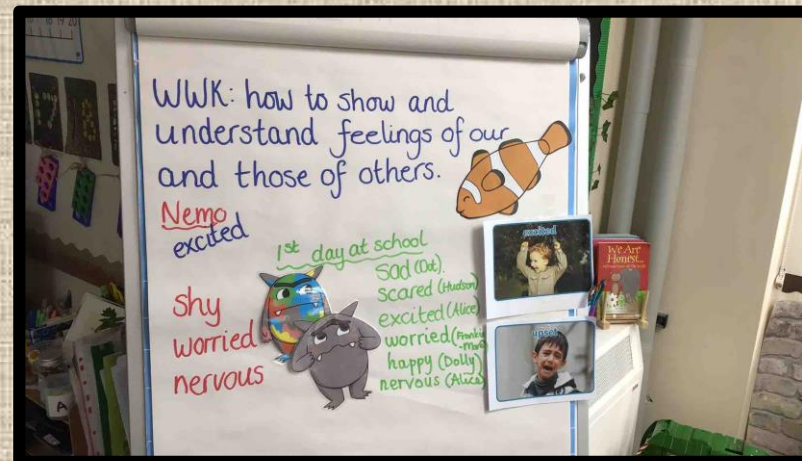 16 18 20
WWK: how to show and
understand feelings of our
and those of others.
Nemo
excited
shy
worried
nervous
1st day at school
sad (Dot).
scared (Hudson)
excited (Alice)
worried
happy (Dolly)
nervous (Alice)
excited
upset
We Are
Honest...
A